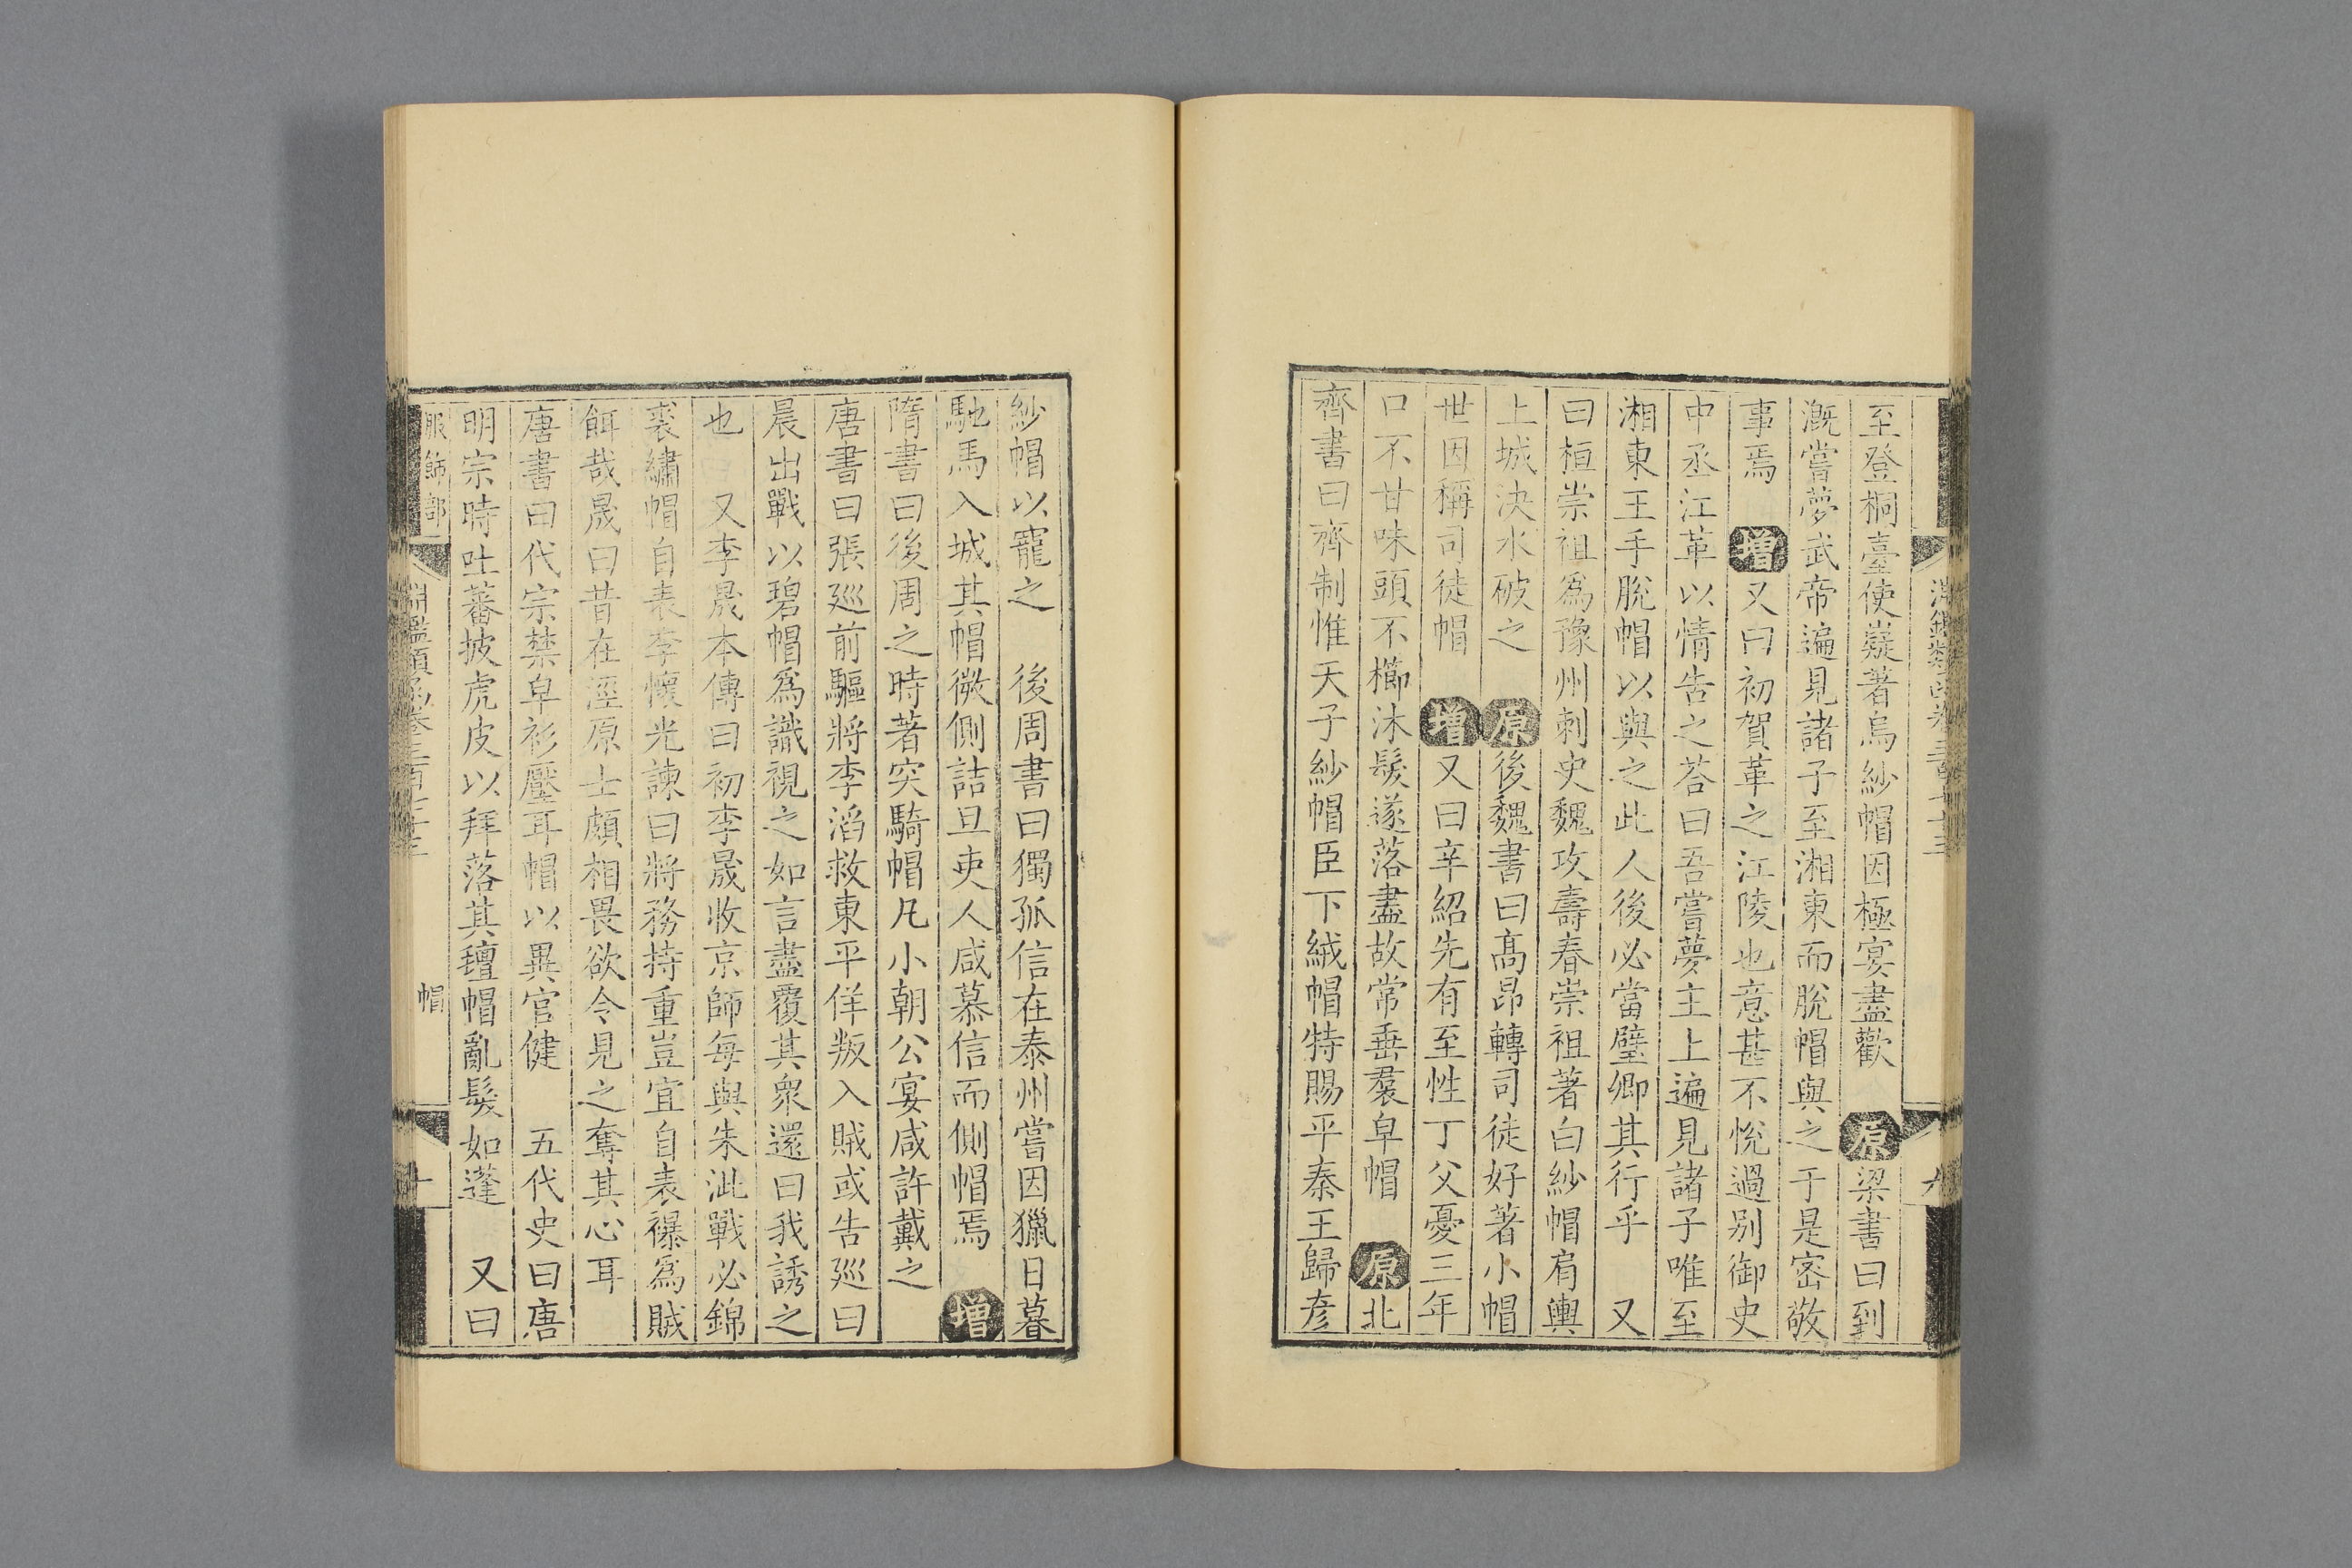 至登桐臺使嶷著烏紗帽因極宴盡歡 原梁書曰到
溉嘗夢武帝遍見諸子至湘東而脫帽與之于是密敬
事焉 增又曰初賀革之江陵也意甚不悅過别御史
中丞江革以情告之荅曰吾嘗夢主上遍見諸子唯至
湘東王手脫帽以與之此人後必當璧卿其行乎 又
曰桓崇祖爲豫州刺史魏攻壽春崇祖著白紗帽肩輿
上城決水破之 原後魏書曰髙昂轉司徒好著小帽
世因稱司徒帽 增又曰辛紹先有至性丁父憂三年
口不甘味頭不櫛沐髮遂落盡故常垂裠皁帽 原北
齊書曰齊制惟天子紗帽臣下絨帽特賜平秦王歸彦
紗帽以寵之 後周書曰獨孤信在秦州嘗因獵日暮
馳馬入城其帽微側詰旦吏人咸慕信而側帽焉 增
隋書曰後周之時著突騎帽凡小朝公宴咸許戴之
唐書曰張廵前驅將李滔救東平佯叛入賊或告廵曰
晨出戰以碧帽爲識視之如言盡覆其衆還曰我誘之
也 又李晟本傳曰初李晟收京師每與朱泚戰必錦
裘繡帽自表李懷光諫曰將務持重豈宜自表襮爲賊
餌哉晟曰昔在涇原士頗相畏欲令見之奪其心耳
唐書曰代宗禁皁衫壓耳帽以異官健 五代史曰唐
明宗時吐蕃披虎皮以拜落其氊帽亂髮如蓬 又曰
服飾部一 淵鑑類函卷三百七十三 帽 十